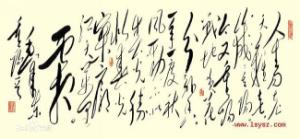 人生易老
天难老
岁岁重阳
今又重阳
战地黄花
分外香
一年一度秋
风劲不似
春光胜
似春光
寥廓
江天万里
霜
毛泽东
重阳
www.lsysz.com